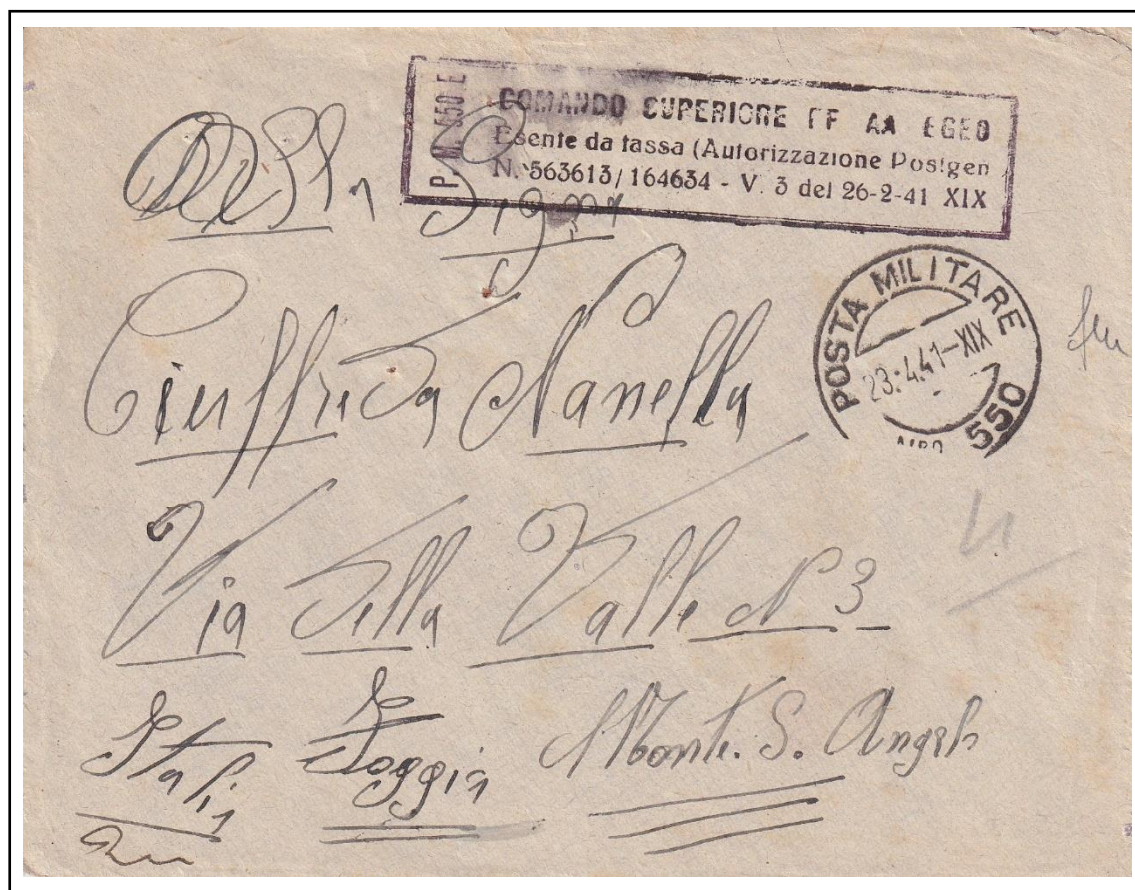 P. M. 550 E
COMANDO SUPERIORE FF AA EGEO
Esente da tassa (Autorizzazione Postgen
N. 563613/164634 - V. 3 del 26-2-41 XIX
POSTA MILITARE
23.4.41-XIX
550
Alla Sig.na
Giuffrida Nanella
Via Della Valle N 3
Italia Foggia Monte. S. Angelo